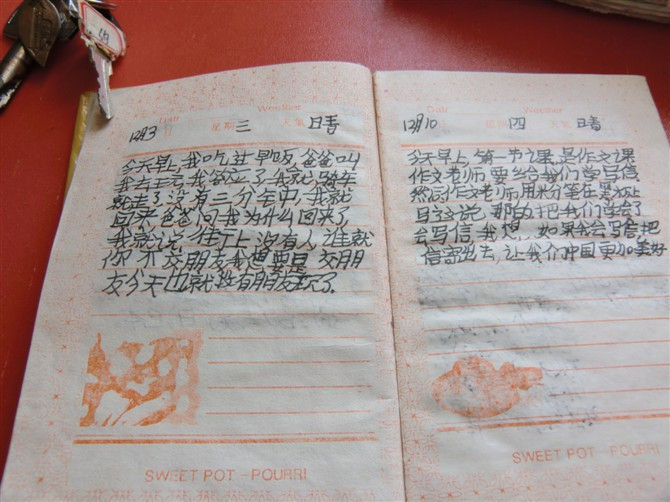 Date Weather
12月3日 星期三 天气 晴
今天早,我吃过早饭,爸爸叫
我去玩,我答应了我就骑车
就走了没有三分钟,我就
回来,爸爸问我为什么回来了
我就说,街上没有人,谁就
你不交朋友我想要是交朋
友今天也就没有朋友玩了.
SWEET POT-POURRI
Date Weather
12月10 星期四 天气 晴
今天早上,第一节课,是作文课
作文老师要给我们学写信
然后作文老师,用粉笔在黑板上
写
会写信,我想,如果我会写信,把
信寄出去,让我们中国更加美好
SWEET POT-POURRI